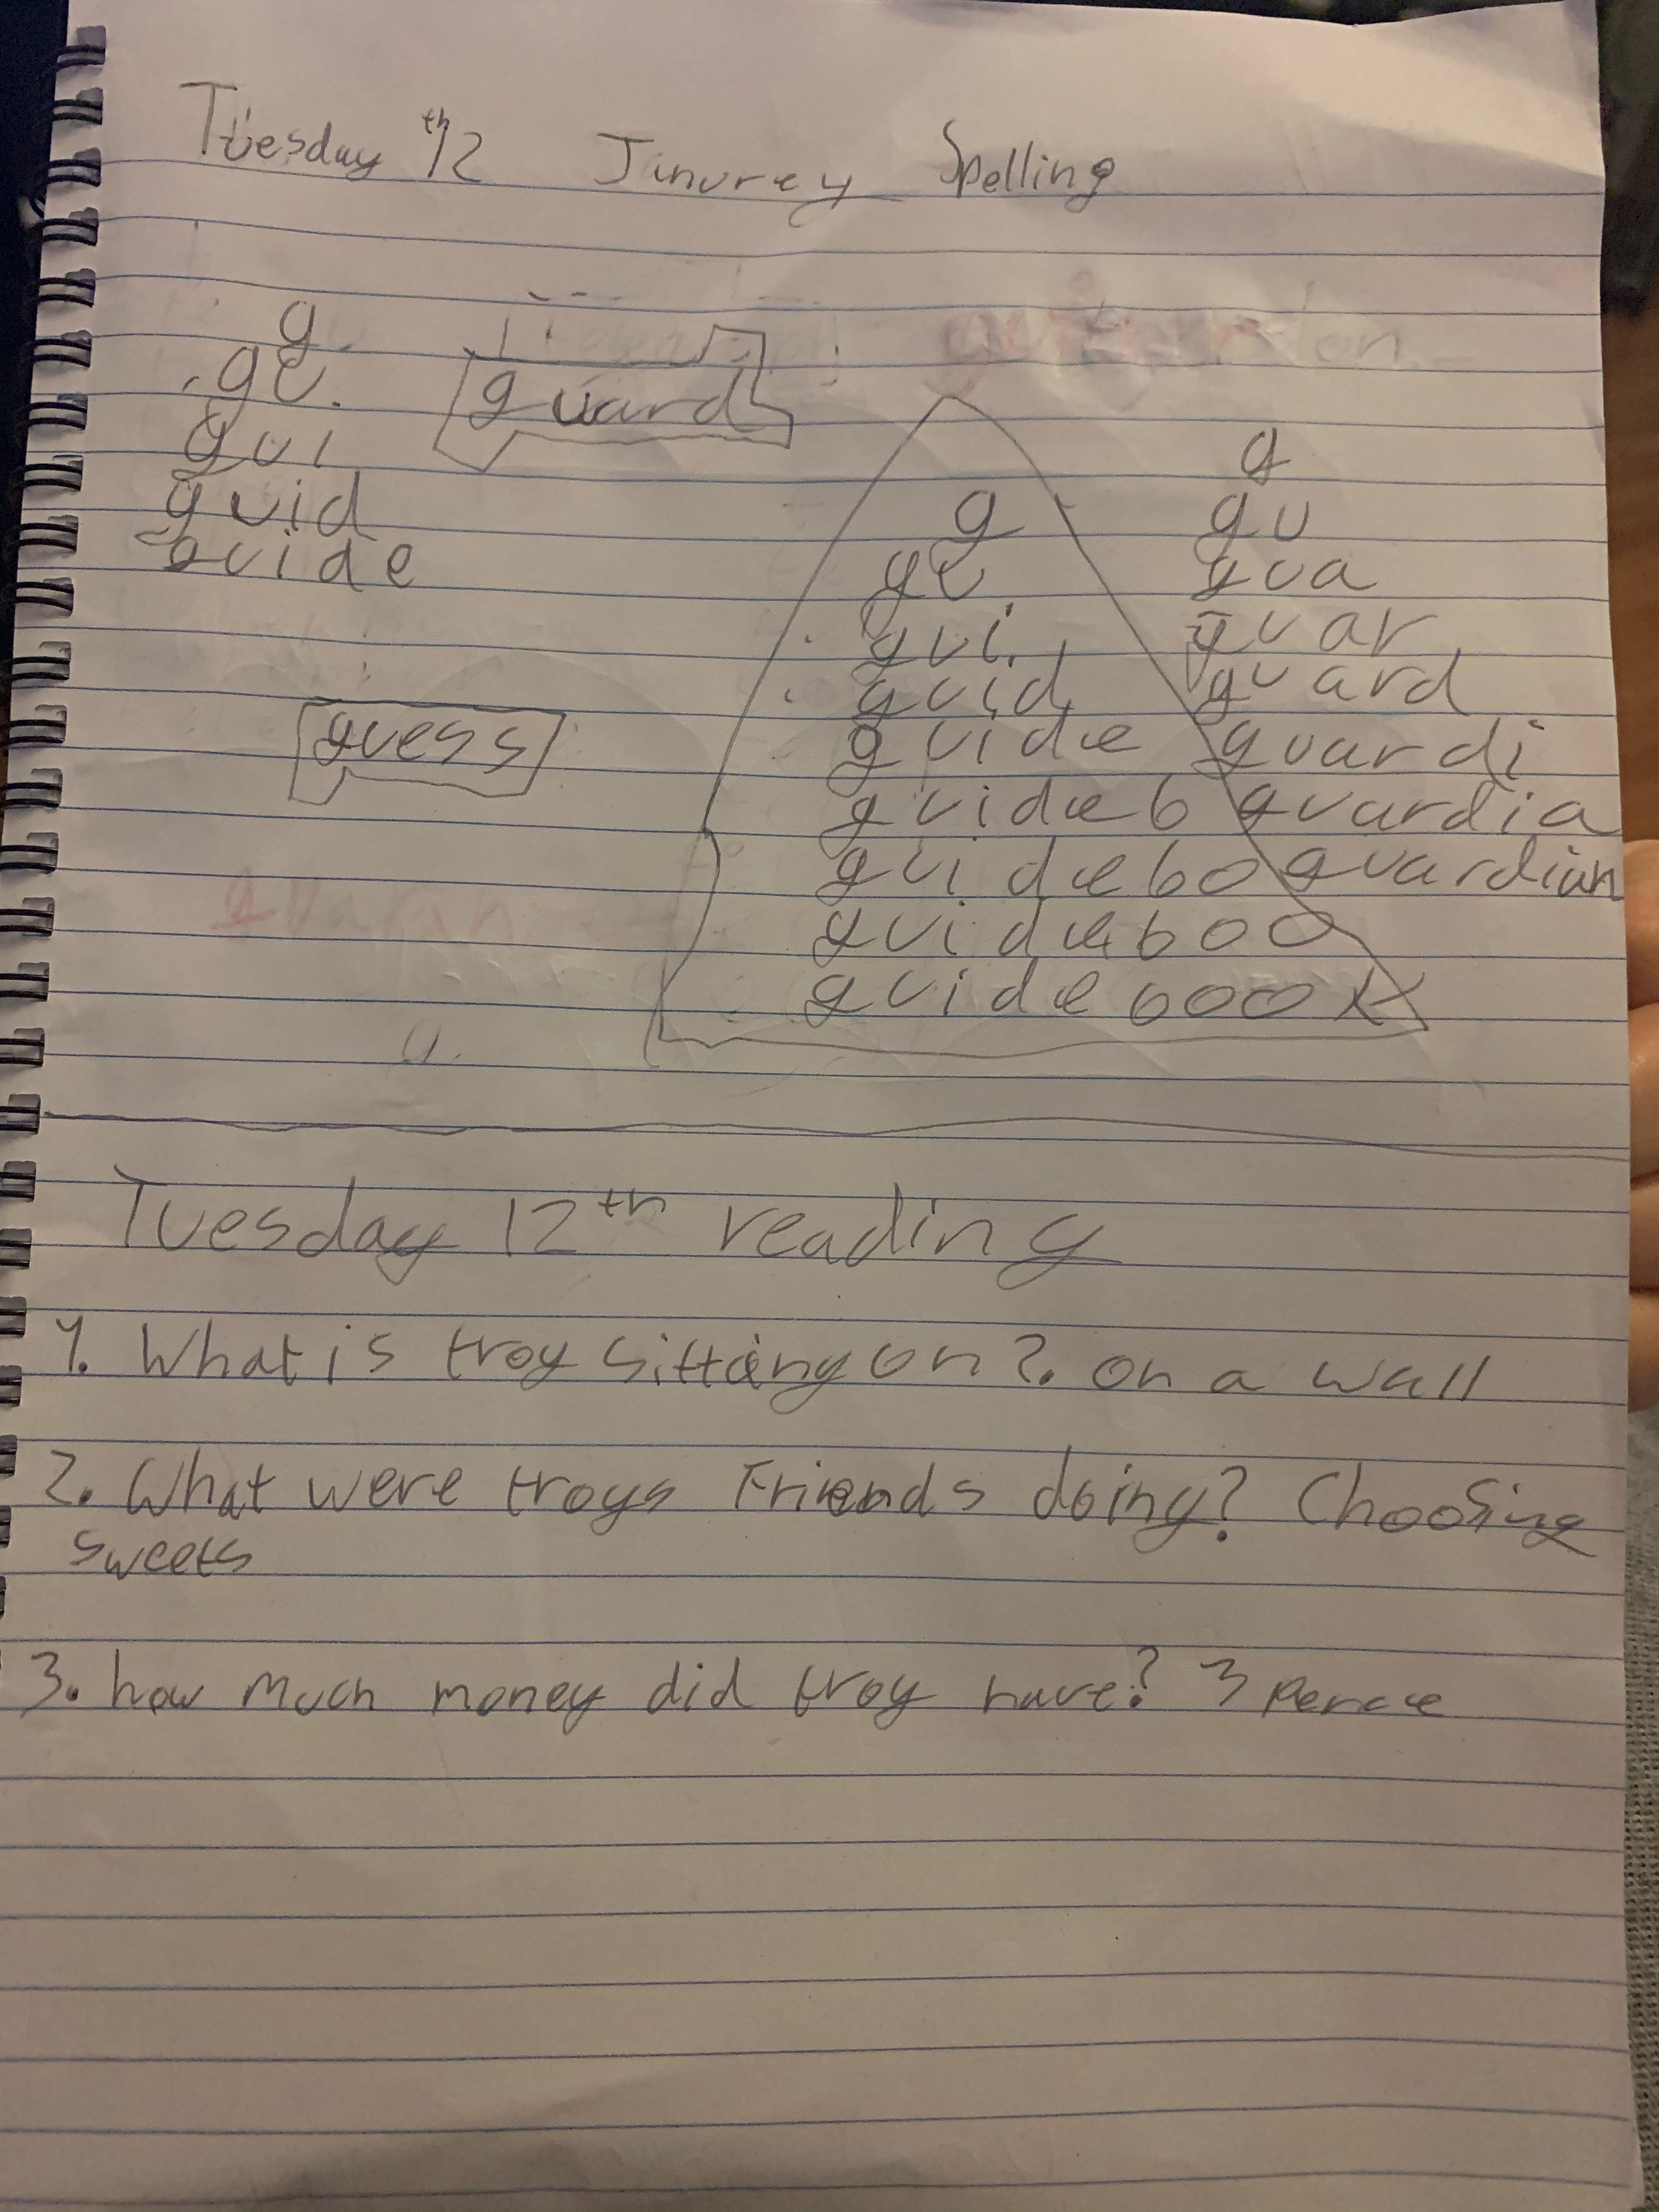 Tuesday 12th Janurey Spelling
g
gu.
gui
guid
guide
guard
guess
g
gu
gui
guid
guide
guideb
guidebo
guideboo
guidebook
g
gu
gua
guar
guard
guardi
guardia
guardian
Tuesday 12th reading
1. What is troy sitting on?. on a wall
2. What were troys Friends doing? Choosing
sweets
3. how much money did troy have? 3 pence